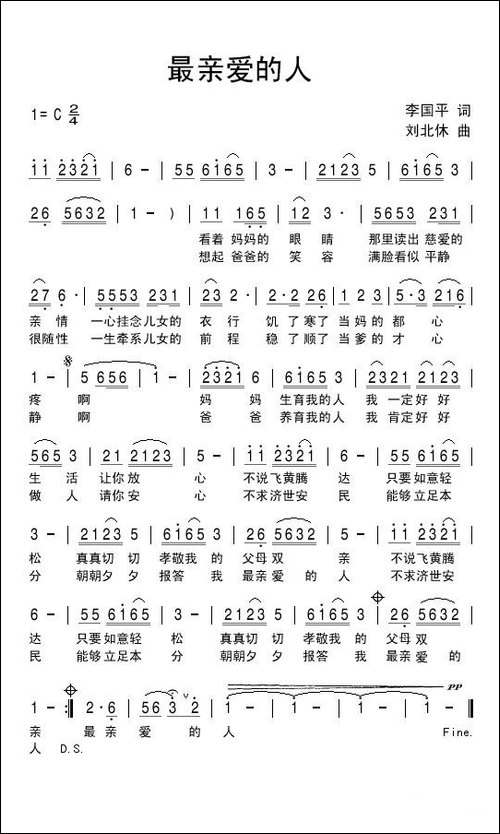 最亲爱的人
1=C 2/4
李国平 词
刘北休 曲
11 2321 | 6 - | 55 6165 | 3 - | 2123 5 | 6165 3 |
26 5632 | 1 - ) | 11 165 | 12 3· | 5653 231 |
看着 妈妈的 眼 睛 那里读出 慈爱的
想起 爸爸的 笑 容 满脸看似 平静
27 6· | 5553 231 | 23 2· | 2·2 26 | 1 2 3 | 5·3 216 |
亲 情 一心挂念 儿女的 衣 行 饥 了 寒了 当 妈 的 都 心
很随性 一生牵系 儿女的 前 程 稳 了 顺了 当 爹 的 才 心
1 - | 5 656 | 1 - | 2321 6 | 6165 3 | 2 321 | 2123 5 |
疼 啊 妈 妈 生育我的人 我 一定好 好
静 啊 爸 爸 养育我的人 我 肯定好 好
565 3 | 21 2123 | 5 - | 11 2321 | 6 - | 55 6165 |
生 活 让你 放 心 不说 飞黄腾 达 只要 如意轻
做 人 请你 安 心 不求 济世安 民 能够 立足本
3 - | 2123 5 | 6165 3 | 26 5632 | 5 - | 11 2321 |
松 真真切 切 孝敬我 的 父母 双 亲 不说 飞黄腾
分 朝朝夕 夕 报答 我 最亲 爱 的 人 不求 济世安
6 - | 55 6165 | 3 - | 2123 5 | 6165 3 | 26 5632 |
达 只要 如意轻 松 真真切 切 孝敬我 的 父母 双
民 能够 立足本 分 朝朝夕 夕 报答 我 最亲 爱 的
1 - :| 2·6 | 56 3 2 | 1 - | 1 - | 1 - | 1 - | pp
亲 最 亲 爱 的 人 Fine.
人 D.S.